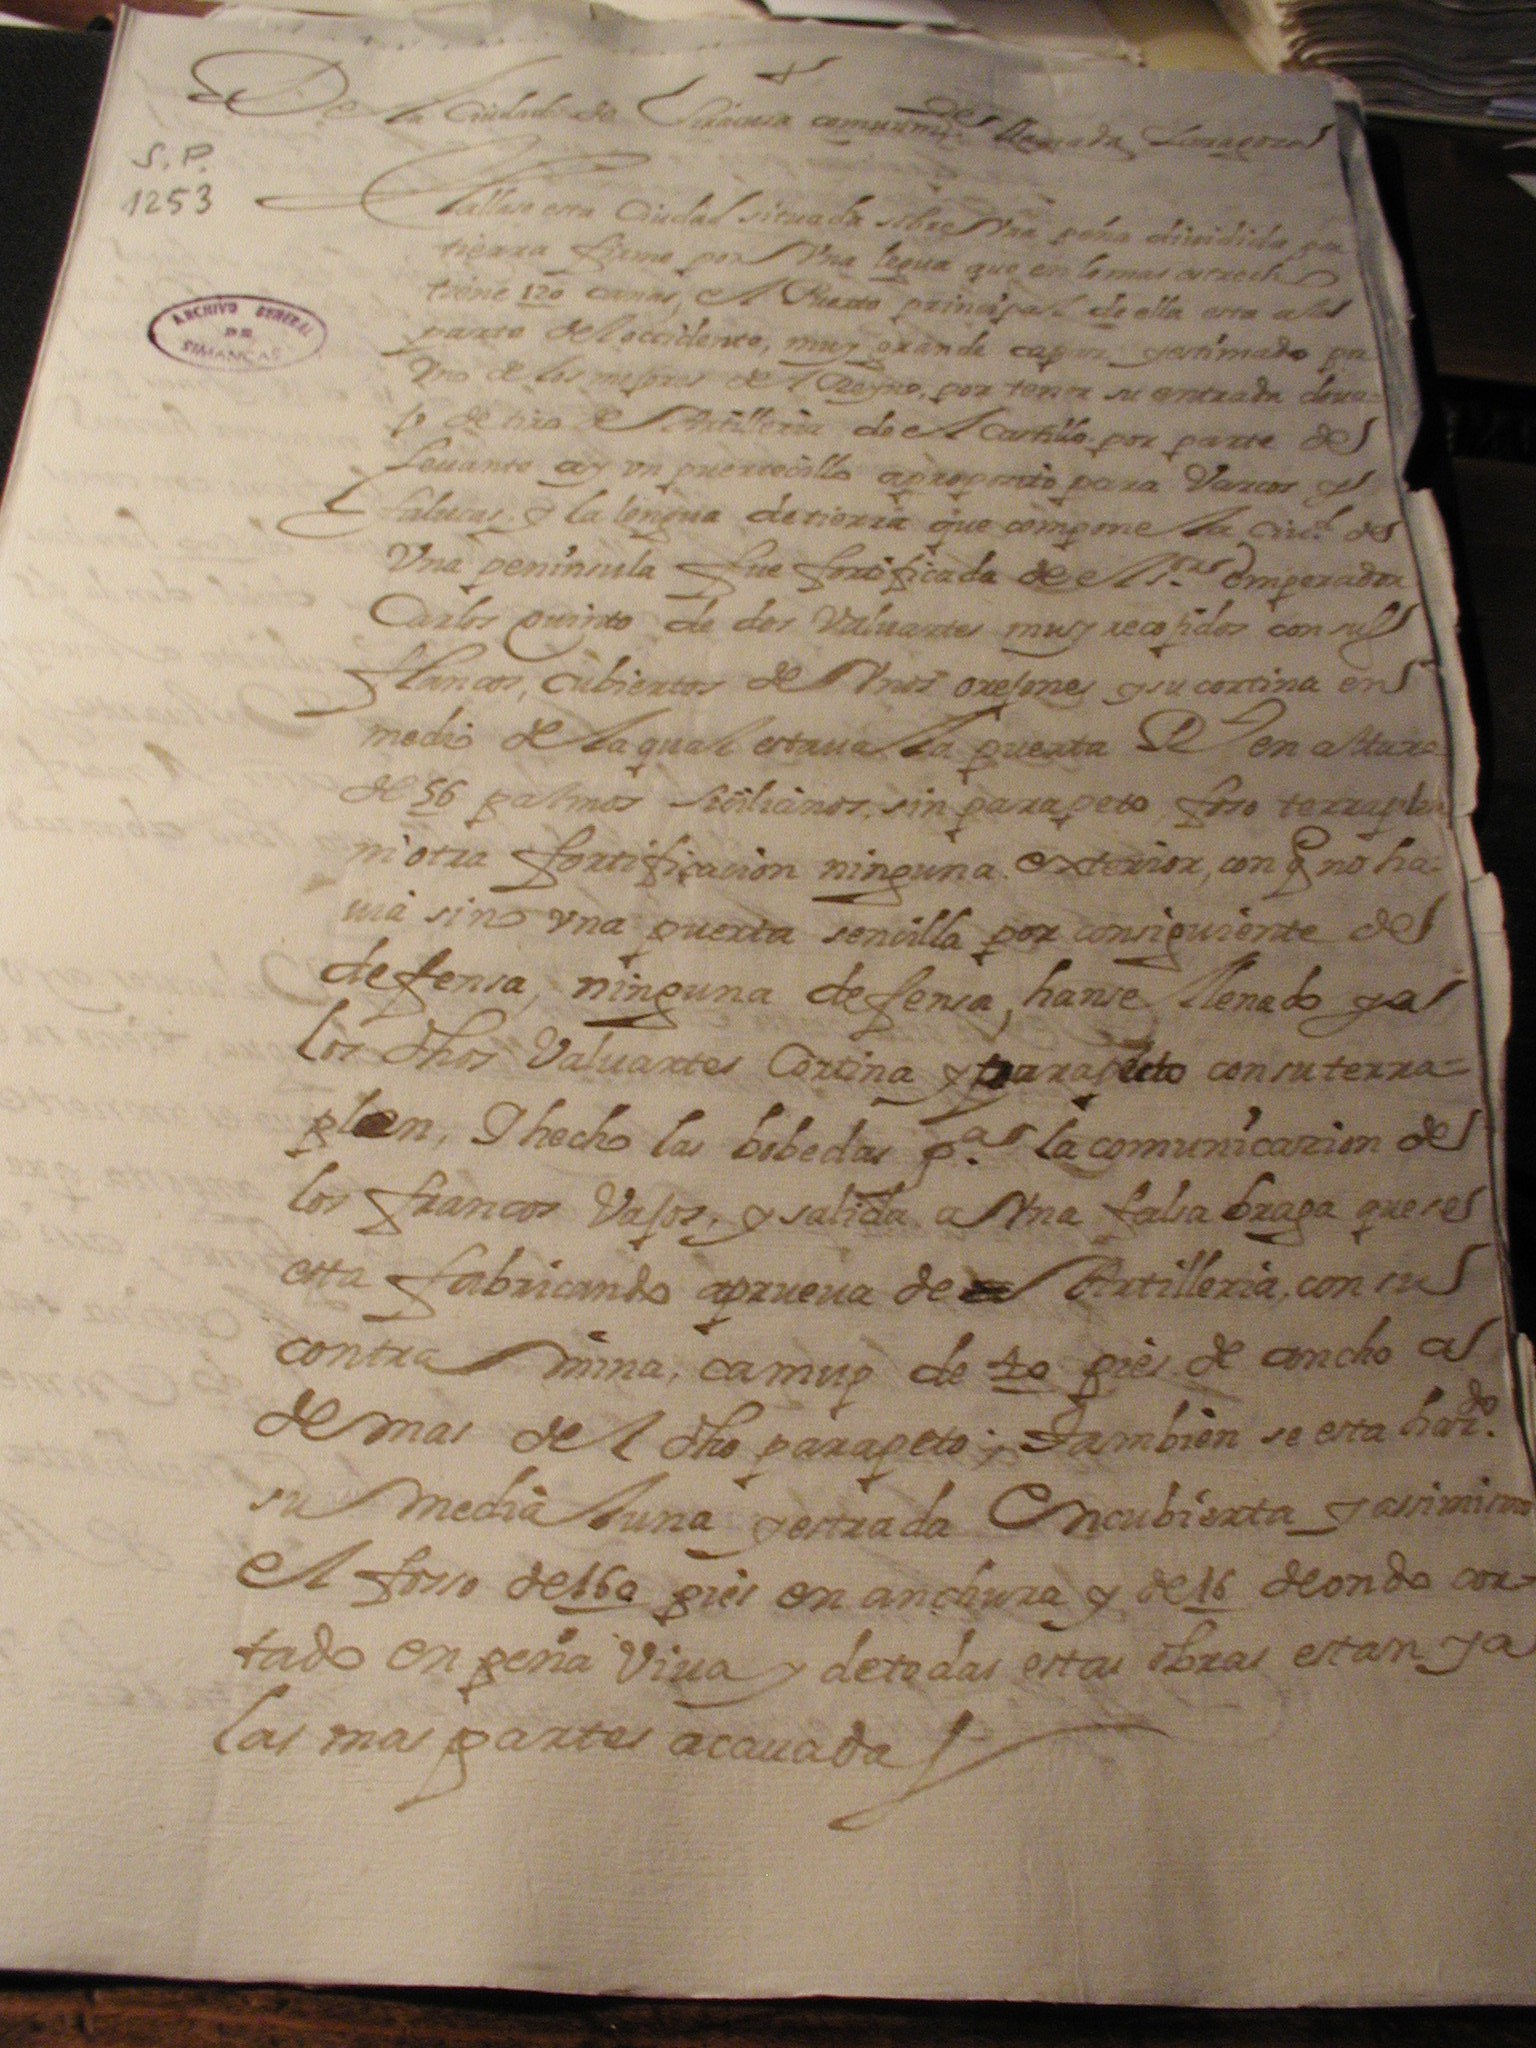 De la Ciudad de Siracusa comunmte llamada Saragoza
S.P.
1253
Hallase esta Ciudad situada sobre Vna peña diuidida de
tierra firme por Vna legua que en lo mas estrecho
tiene 120 canas, el Puerto principal de ella esta a la
parte del occidente, muy grande capaz y estimado por
Vno de los mejores del Reyno, por tener su entrada deua-
jo de tiro de Artilleria de el Castillo por parte de
Leuante ay vn puertecillo aproposito para Varcos y
falucas, y la lengua de tierra que compone la Ciud. de
Vna peninsula fue fortificada de el sor emperador
Carlos quinto de dos Valuartes muy recojidos con sus
flancos, cubiertos de Vnos orejones y su cortina en
medio de la qual estaua la puerta Rl en altura
de 56 palmos sicilianos, sin parapeto, foso terraplen
ni otra fortificacion ninguna exterior, con q no ha-
uia sino vna puerta sencilla por consiguiente de
defensa, ninguna defensa, hanse llenado ya
los dhos Valuartes Cortina y parapeto con su terra-
plen, I hecho las bobedas pa la comunicazion de
los francos Vajos, y salida a Vna falsa braga que se
esta fabricando aprueua de Artilleria, con su
contra mina, camup de 40 pies de ancho a
de mas del dho parapeto; Tambien se esta hazdo
su media luna y estrada Encubierta y assimismo
el fosso de 160 pies en anchura y de 16 de ondo cor-
tado en peña Viua y de todas estas obras estan ya
las mas partes acauada
ARCHIVO GENERAL
DE
SIMANCAS